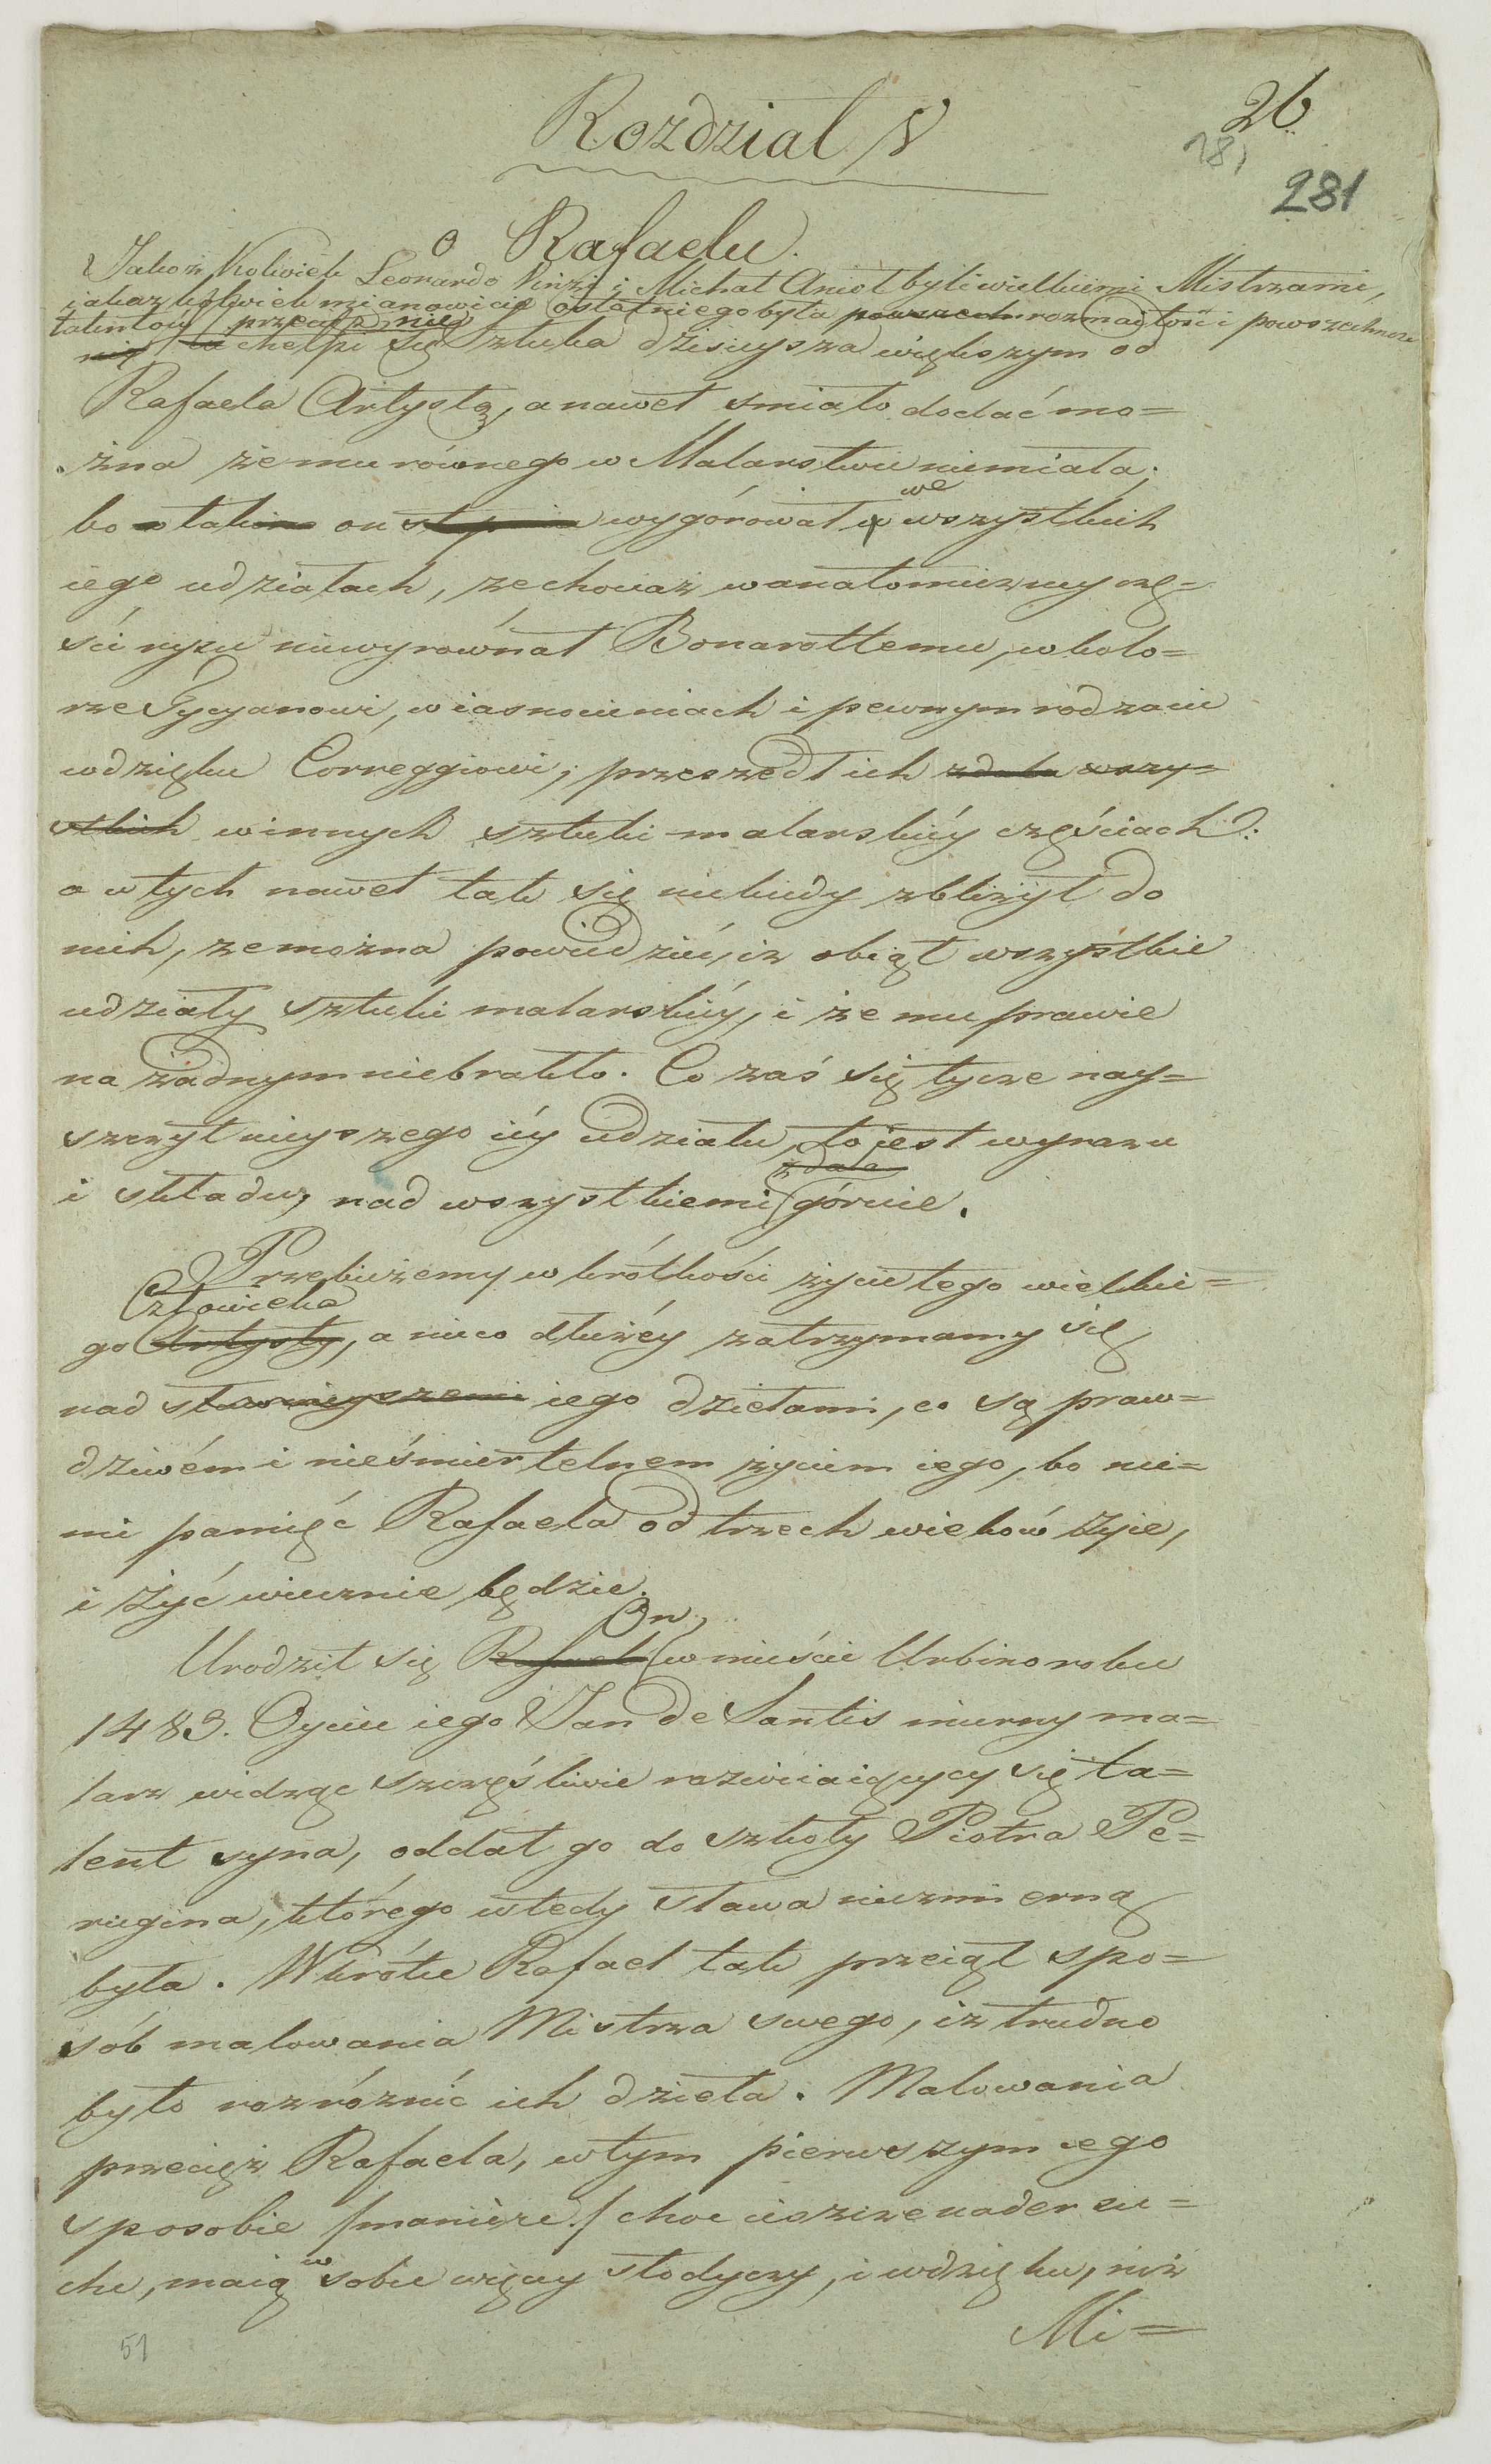 26
281
281
Rozdział V
o Rafaelu.
Jakoż kolwiek Leonardo Vinzi i Michał Anioł byli wielkiemi Mistrzami,
iakaz kolwiek mianowicie ostatniego była rozmaitość i powszechność
talentów przecież nie
chełpi się sztuka dzisieysza większym od
Rafaela Artystą, a nawet smiało dodać mo=
żna że mu równego w Malarstwie niemiała;
bo tak on wygórował we wszystkich
iego udziałach, że chociaż w anatomiczney czę=
ści rysu niewyrównał Bonarottemu, w kolo=
rze Tycyanowi, w iasnocieniach i pewnym rodzaiu
wdzięku Correggiowi; przeszedł ich zdala wszy=
stkich w innych sztuki malarskiéy częściach:
a w tych nawet tak się niekiedy zbliżył do
nich, że można powiedzieć, iż obiął wszystkie
udziały sztuki malarskiéy, i że mu prawie
na żadnym niebrakło. Co zaś się tycze nay=
szczytnieyszego iéy udziału, to iest wyrazu
zdala
i składu, nad wszystkiemi góruie.
Przebieżemy w krótkości życie tego wielkie=
Człowieka
go Artysty, a nieco dłużéy zatrzymamy się
nad sławnieyszemi iego dziełami, co są praw=
dziwém i nieśmiertelnem życiem iego, bo nie=
mi pamięć Rafaela od trzech wieków żyie,
i żyć wiecznie będzie.
On,
Urodził się Rafael w mieście Urbino roku
1483. Oyciec iego Jan de Santis mierny ma=
larz widząc szczęśliwie rozwiiaiący się ta=
lent syna, oddał go do szkoły Piotra Pe=
rugina, którego wtedy sława niezmierną
była. Wkrótce Rafael tak przeiął spo=
sób malowania Mistrza swego, iż trudno
było rozróżnić ich dzieła. Malowania
przecięż Rafaela, w tym pierwszym iego
sposobie /manière./ choc ieszcze nader su=
che, maią w sobie więcey słodyczy, i wdzięku, niż
Mi=
51